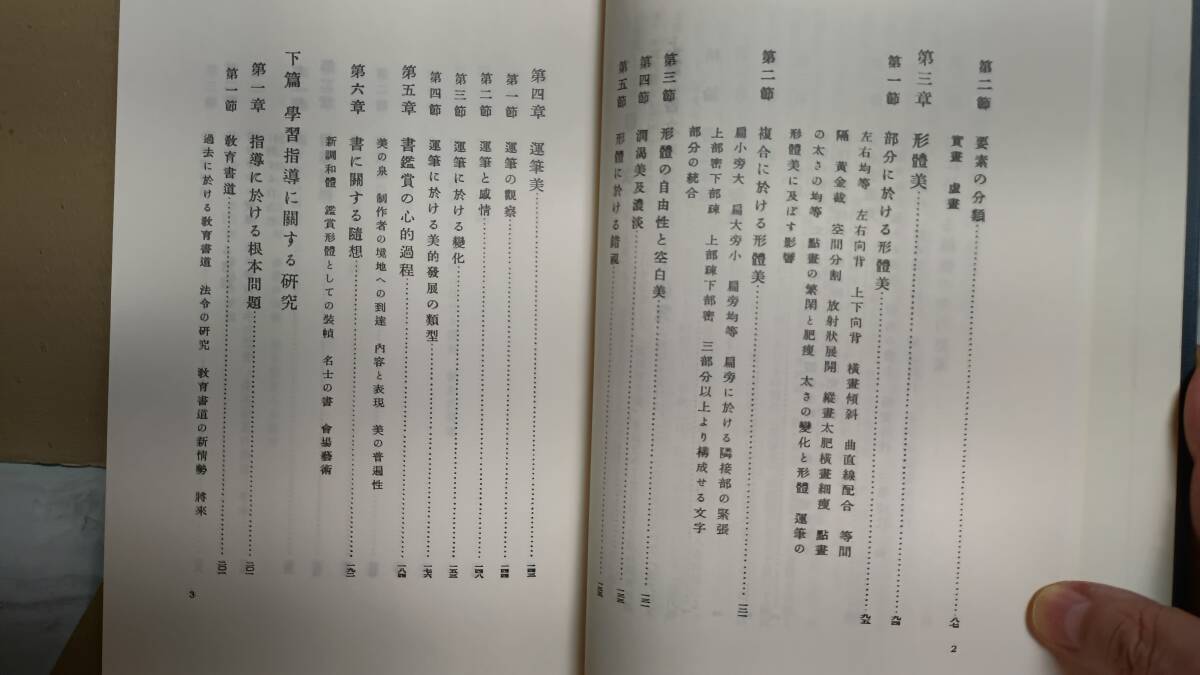 第二節 要素の分類……八七
實畫 虛畫
第三章 形體美……九四
第一節 部分に於ける形體美……九五
左右均等 左右向背 上下向背 橫畫傾斜 曲直線配合 等間
隔 黃金截 空間分割 放射狀展開 縱畫太肥橫畫細瘦 點畫
の太さの均等 點畫の繁閑と肥瘦 太さの變化と形體 運筆の
形體美に及ぼす影響
第二節 複合に於ける形體美
扁小旁大 扁大旁小 扁旁均等 扁旁に於ける隣接部の緊張
上部密下部疎 上部疎下部密 三部分以上より構成せる文字
部分の統合
第三節 形體の自由性と空白美
第四節 潤渴美及濃淡
第五節 形體に於ける錯視
2
第四章 運筆美
第一節 運筆の觀察
第二節 運筆と感情
第三節 運筆に於ける變化
第四節 運筆に於ける美的發展の類型
第五章 書鑑賞の心的過程
美の泉 制作者の境地への到達 內容と表現 美の普遍性
第六章 書に關する隨想
新調和體 鑑賞形體としての裝幀 名士の書 會場藝術
下篇 學習指導に關する硏究
第一章 指導に於ける根本問題
第一節 敎育書道
過去に於ける敎育書道 法令の硏究 敎育書道の新情勢 將來
3